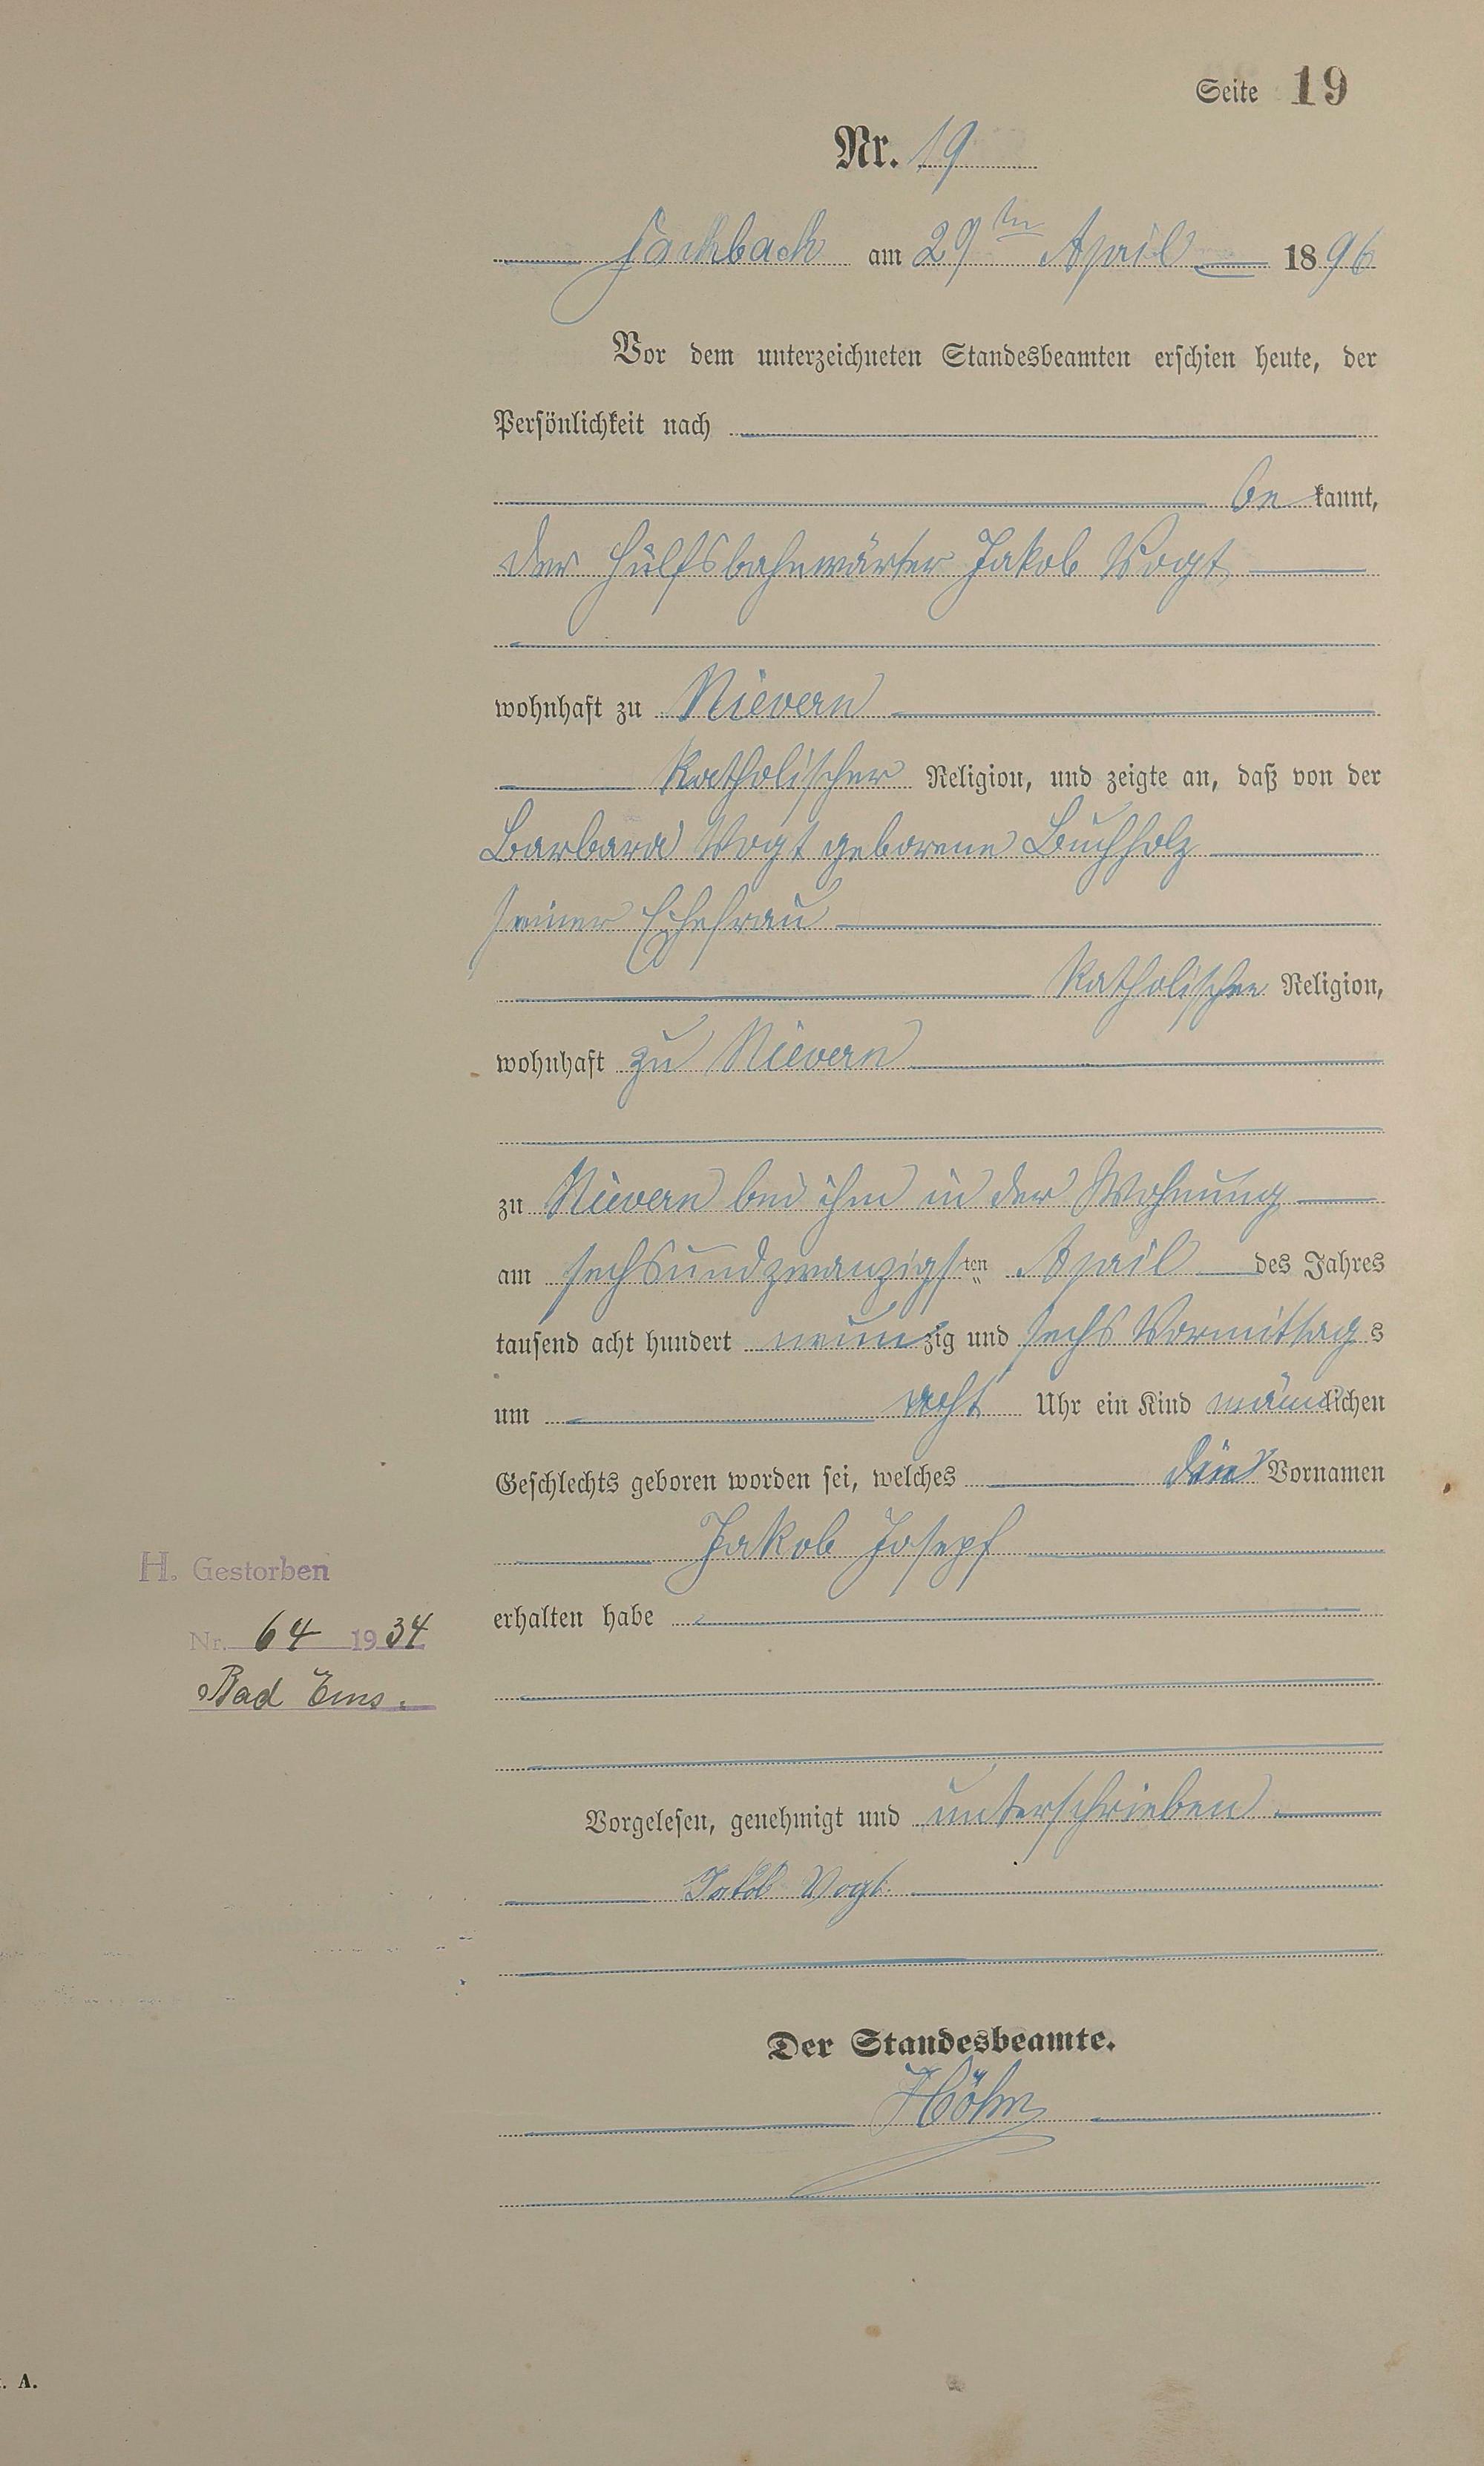 Seite 19
Nr. 19
Fachbach am 29ten April 1896
Vor dem unterzeichneten Standesbeamten erschien heute, der
Persönlichkeit nach
be kannt,
der Hülfsbahnwärter Jakob Vogt
wohnhaft zu Nievern
katholischer Religion, und zeigte an, daß von der
Barbara Vogt geborene Buchholz
seiner Ehefrau
katholischer Religion,
wohnhaft zu Nievern
zu Nievern bei ihm in der Wohnung
am sechsundzwanzigsten April des Jahres
tausend acht hundert neunzig und sechs Vormittags
um acht Uhr ein Kind männlichen
Geschlechts geboren worden sei, welches die Vornamen
Jakob Josepf
H. Gestorben
erhalten habe
Nr. 64 1934
Bad Ems.
Vorgelesen, genehmigt und unterschrieben.
Jakob Vogt.
Der Standesbeamte.
Höhn
. A.